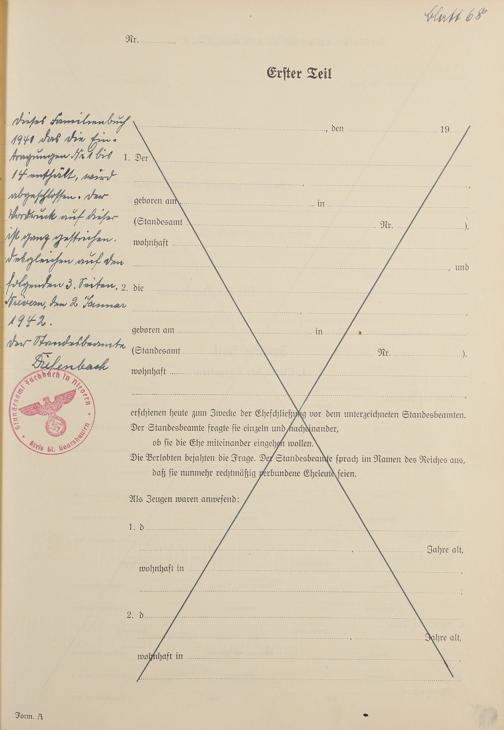 Blatt 68
Nr.
Erster Teil
, den 19
Dieses Familienbuch
1941 das die Ein-
tragungen Nr 1 bis
14 enthält, wird
abgeschlossen. Der
Vordruck auf dieser
ist ganz gestrichen.
desgleichen auf den
folgenden 3. Seiten.
Nievern, den 2. Januar
1942.
Der Standesbeamte
1. Der
geboren am in
(Standesamt Nr. ).
wohnhaft
, und
2. die
geboren am in
(Standesamt Nr. ).
wohnhaft
erschienen heute zum Zwecke der Eheschließung vor dem unterzeichneten Standesbeamten.
Der Standesbeamte fragte sie einzeln und nacheinander,
ob sie die Ehe miteinander eingehen wollen.
Die Verlobten bejahten die Frage. Der Standesbeamte sprach im Namen des Reiches aus,
daß sie nunmehr rechtmäßig verbundene Eheleute seien.
Als Zeugen waren anwesend:
1. d
Jahre alt,
wohnhaft in
2. d
Jahre alt,
wohnhaft in
Form. A
Standesamt Fachbach in Nievern
Kreis St. Goarshausen